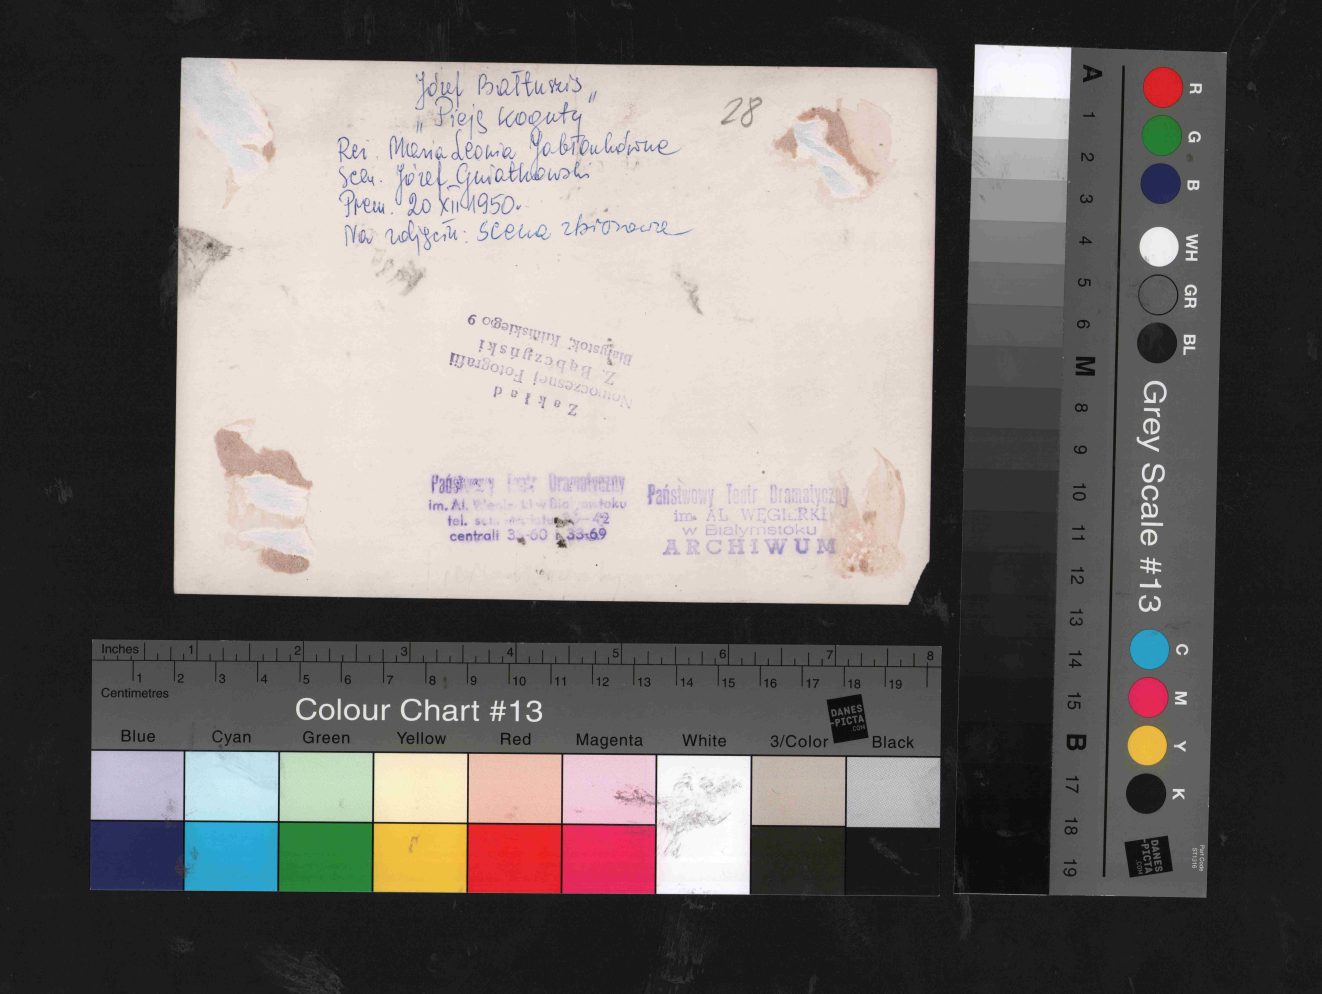 Józef Bałtuszis
„Pieją koguty”
28
Reż. Maria Leonia Jabłonkówna
Scen. Józef Gniatkowski
Prem. 20 XII 1950.
Na zdjęciu: scena zbiorowa
Zakład
Nowoczesnej Fotografii
Z. Bąbczyński
Białystok, Kilińskiego 9
Państwowy Teatr Dramatyczny
im. Al. w Białymstoku
tel.
centrali 33-69
Państwowy Teatr Dramatyczny
im. AL. WĘGIERKI
w Białymstoku
ARCHIWUM
Inches 1 2 3 4 5 6 7 8
1 2 3 4 5 6 7 8 9 10 11 12 13 14 15 16 17 18 19
Centimetres
Colour Chart #13
DANES
-PICTA
.COM
Blue Cyan Green Yellow Red Magenta White 3/Color Black
A 1 2 3 4 5 6 M 8 9 10 11 12 13 14 15 B 17 18 19
R G B WH GR BL
Grey Scale #13
C M Y K
DANES
-PICTA
.COM
Part Code
ST1316